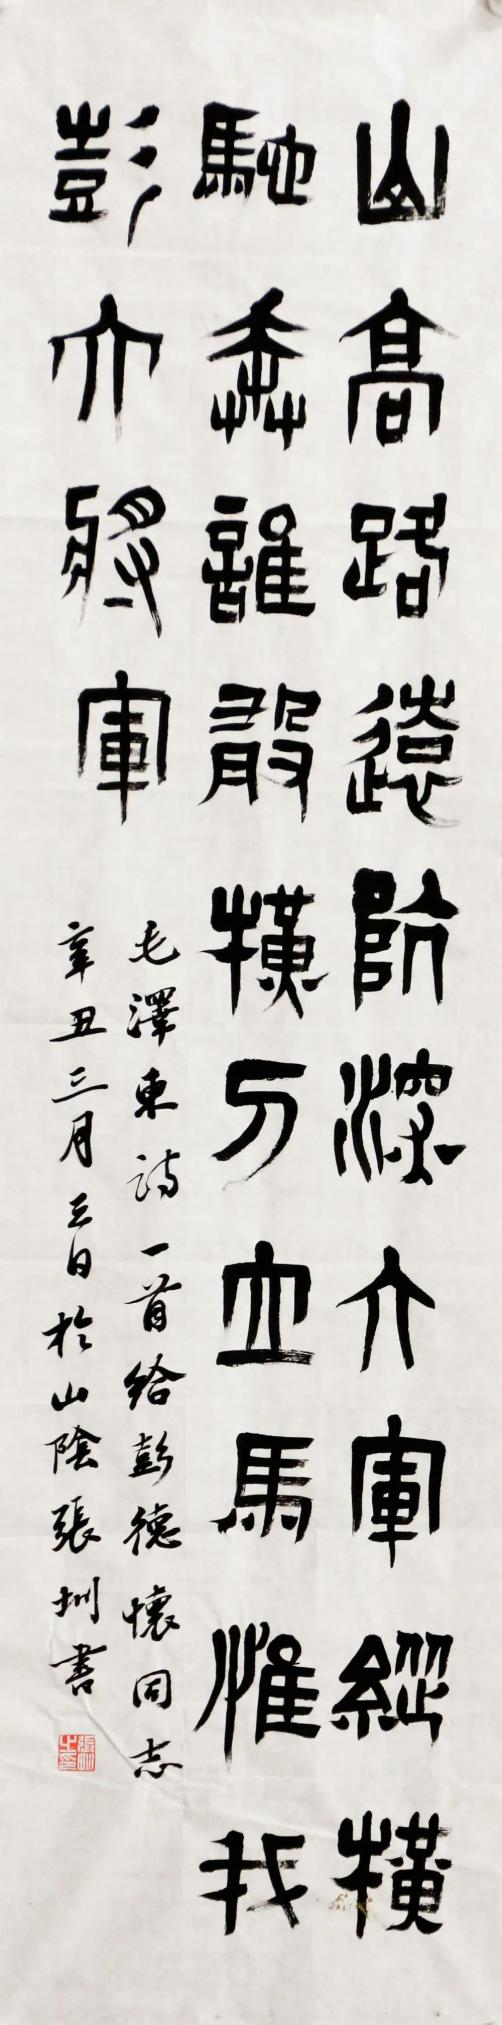 山高路遠阬深大軍縱橫
馳奔誰敢橫刀立馬惟我
彭大將軍
毛澤東詩一首給彭德懷同志
辛丑三月三日於山陰張圳書